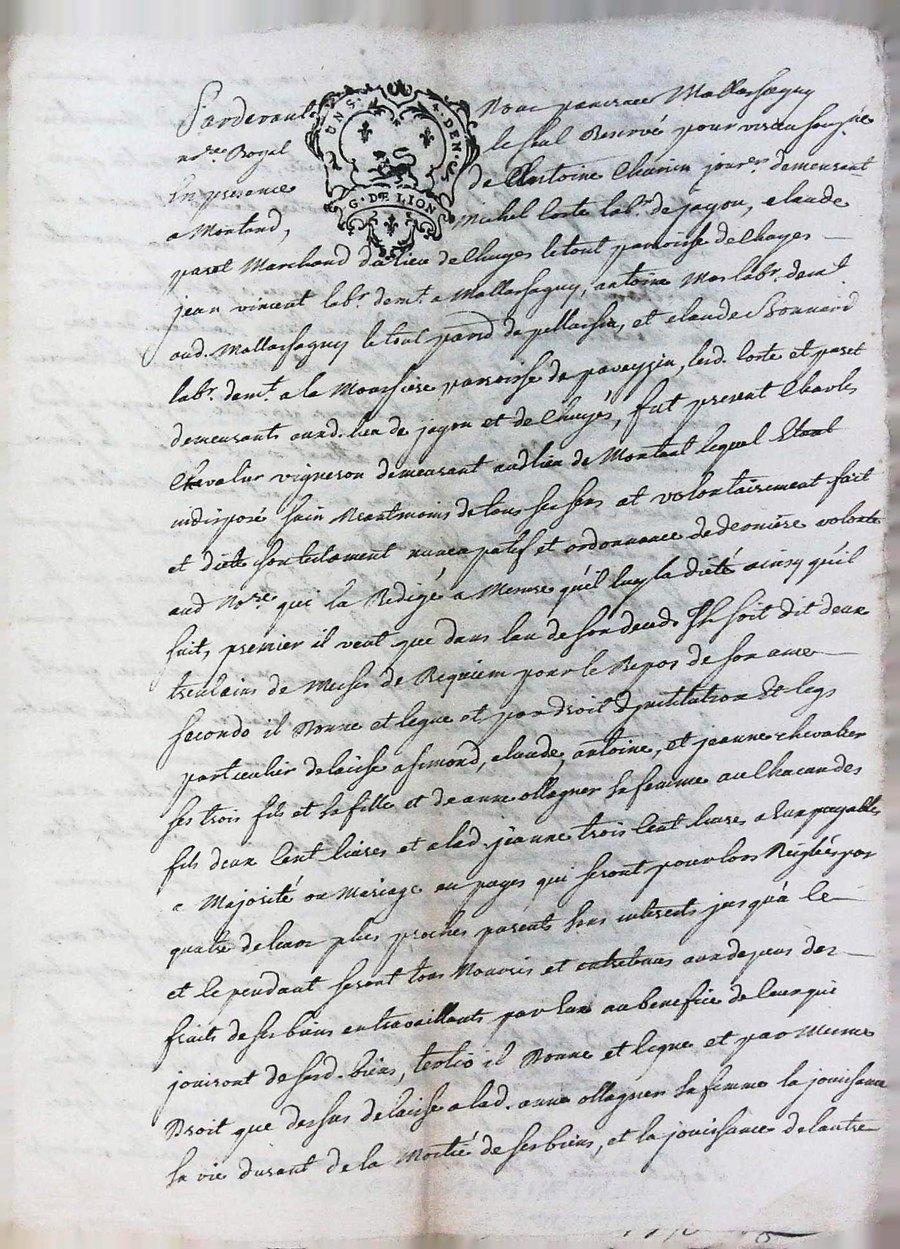 Pardevant Nous pancrace Mallassaguy
UN S. 4. DEN.
no.re Royal le seul Reservé pour vireu soug.né
En presence de Antoine Charin jour.er demeurant
G. DE LION
a Montand, Michel Corte lab.r de jayon, claude
paret Marchand du lieu de Chuyes le tout paroisse de Chuyes
jean vincent lab.r dem.t a Mallassaguy, antoine Mas lab.r dem.t
aud. Mallassaguy le tout paroi de pellassin, et claude Bonnard
lab.r dem.t a la Moussiere paroisse de paveyzin, lesd. Corte et paret
demeurants auxd. lieu de jayon et de Chuyés, fut present Charles
Chevalier vigneron demeurant aud lieu de Montant lequel Etant
indisposé sain Neantmoins de tous ses sens at volontairement fait
et dicté son testament nuncupatif et ordonnance de derniére volonte
aud No.re qui la Redigé a Mesure qu'il luy la dicté ainsy qu'il
suit, premier il veut que dans lan de son decéds Il soit dit deux
trentains de Messes de Requiem pour le Repos de son ame
secondo il Donne et legue et par droit d'institution et legs
particulier delaisse a simond, claude, antoine, et jeanne chevalier
ses trois fils et sa fille et de anne ollagner sa femme au Chacun des
fils deux Cent livres et a lad. jeanne trois Cent livres a Eux payables
a Majorité ou Mariage au payes qui seront pour lors Reiglés par
quatre de leurs plus proches parents sans interests jusqu'a le
et le pendant seront tous Nourris et entretenus aux depens des
fruits de ses biens en travaillants par Eux au benefice de leux qui
jouiront de sesd. biens, tertio il Donne et legue et par Mesme
Droit que dessus delaisse a lad. anne ollagner sa femme la jouissance
sa vie durant de la Moitié de ses biens, et la jouissance de lautre